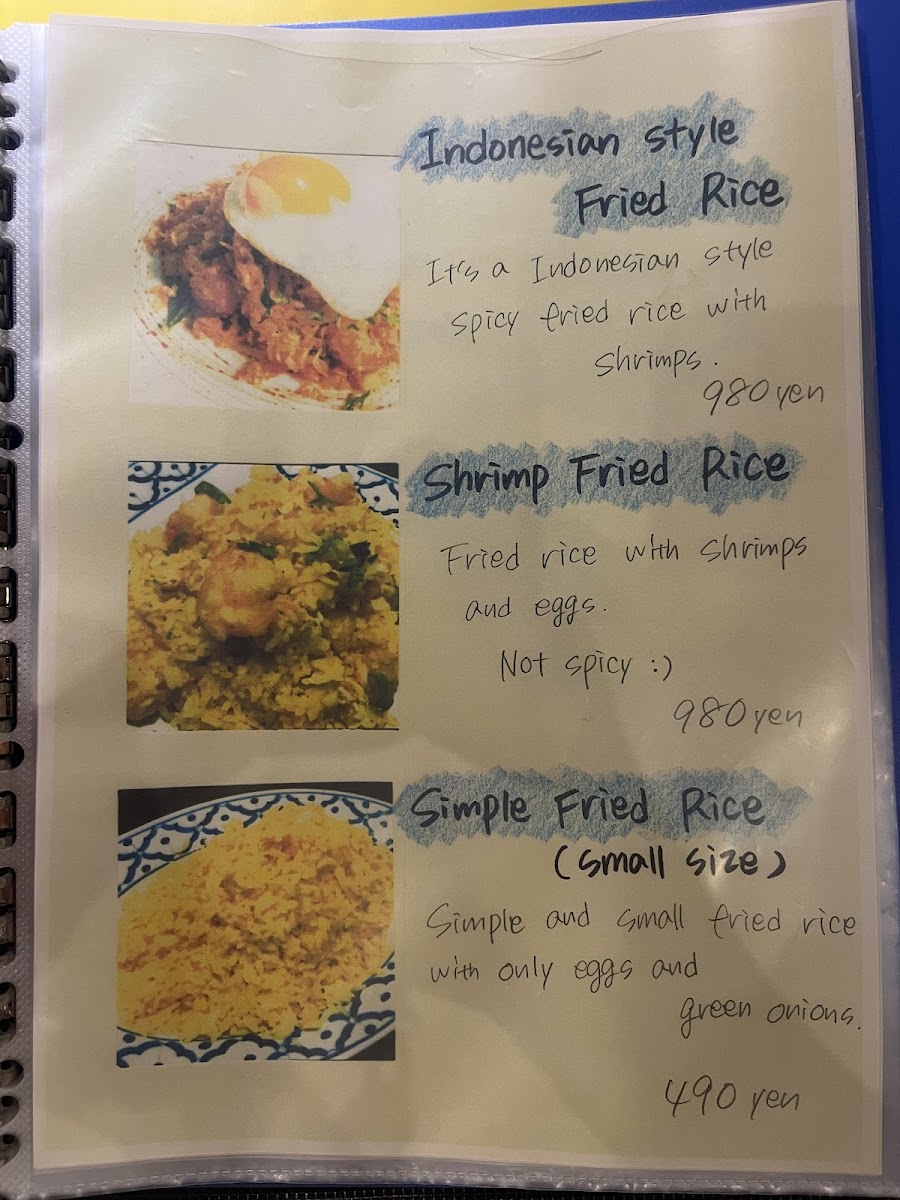 Indonesian style
Fried Rice
It's a Indonesian style
spicy fried rice with
shrimps.
980yen
Shrimp Fried Rice
Fried rice with shrimps
and eggs.
Not spicy :)
980yen
Simple Fried Rice
(small size)
Simple and small fried rice
with only eggs and
green onions.
490 yen